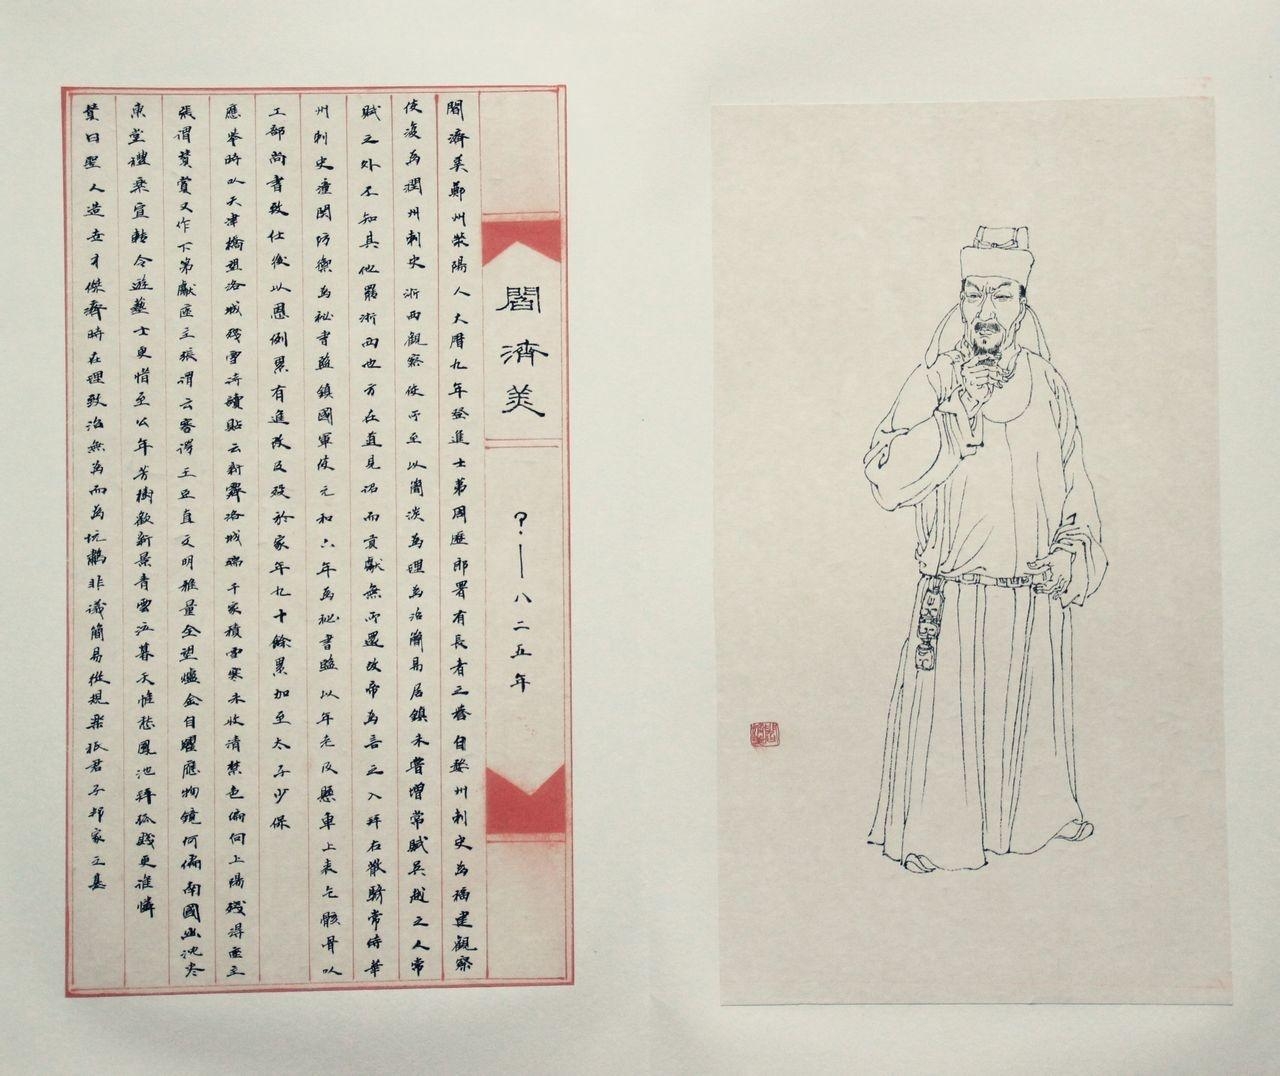 閻濟美
?—八二五年
閻濟美鄭州滎陽人大曆九年登進士第周歷郎署有長者之譽自婺州刺史為福建觀察
使復為潤州刺史浙西觀察使所至以簡淡為理為治簡易居鎮未嘗增常賦吳越之人常
賦之外不知其他罷浙西也方在道見詔而貢獻無所還故帝為言之入拜右散騎常侍華
州刺史潼関防禦為祕書監鎮國軍使元和六年為祕書監以年老及懸車上表乞骸骨以
工部尚書致仕後以恩例累有進改及歿於家年九十餘累加至太子少保
應舉時以天津橋望洛城殘雪詩續貼云新霽洛城端千家積雪寒未收清禁色偏向上陽殘得座主
張謂賛賞又作下第獻座主張謂云謇諤王臣直文明雅量全望爐金自躍應物鏡何偏南國幽沈盡
東堂禮樂宣轉令遊藝士更惜至公年芳樹歡新景青雲泣暮天惟愁鳳池拜孤賤更誰憐
賛曰聖人造世才傑濟時在理致治無為而為坑鷸非議簡易從規樂祇君子邦家之基